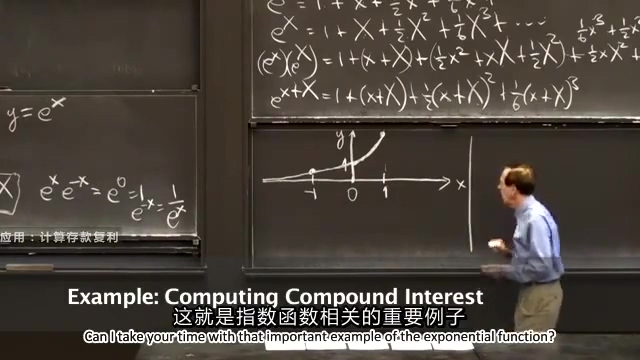 e^x = 1 + x + ½x² + ⅙x³ + ···
(e^x)(e^X) = 1 + (x+X) + (½x² + xX + ½X²) +
e^{x+X} = 1 + (x+X) + ½(x+X)² + ⅙(x+X)³
y = e^x
e^x e^{-x} = e^0 = 1
e^{-x} = 1/e^x
y
1
-1 0 1 x
应用：计算存款复利
Example: Computing Compound Interest
这就是指数函数相关的重要例子
Can I take your time with that important example of the exponential function?